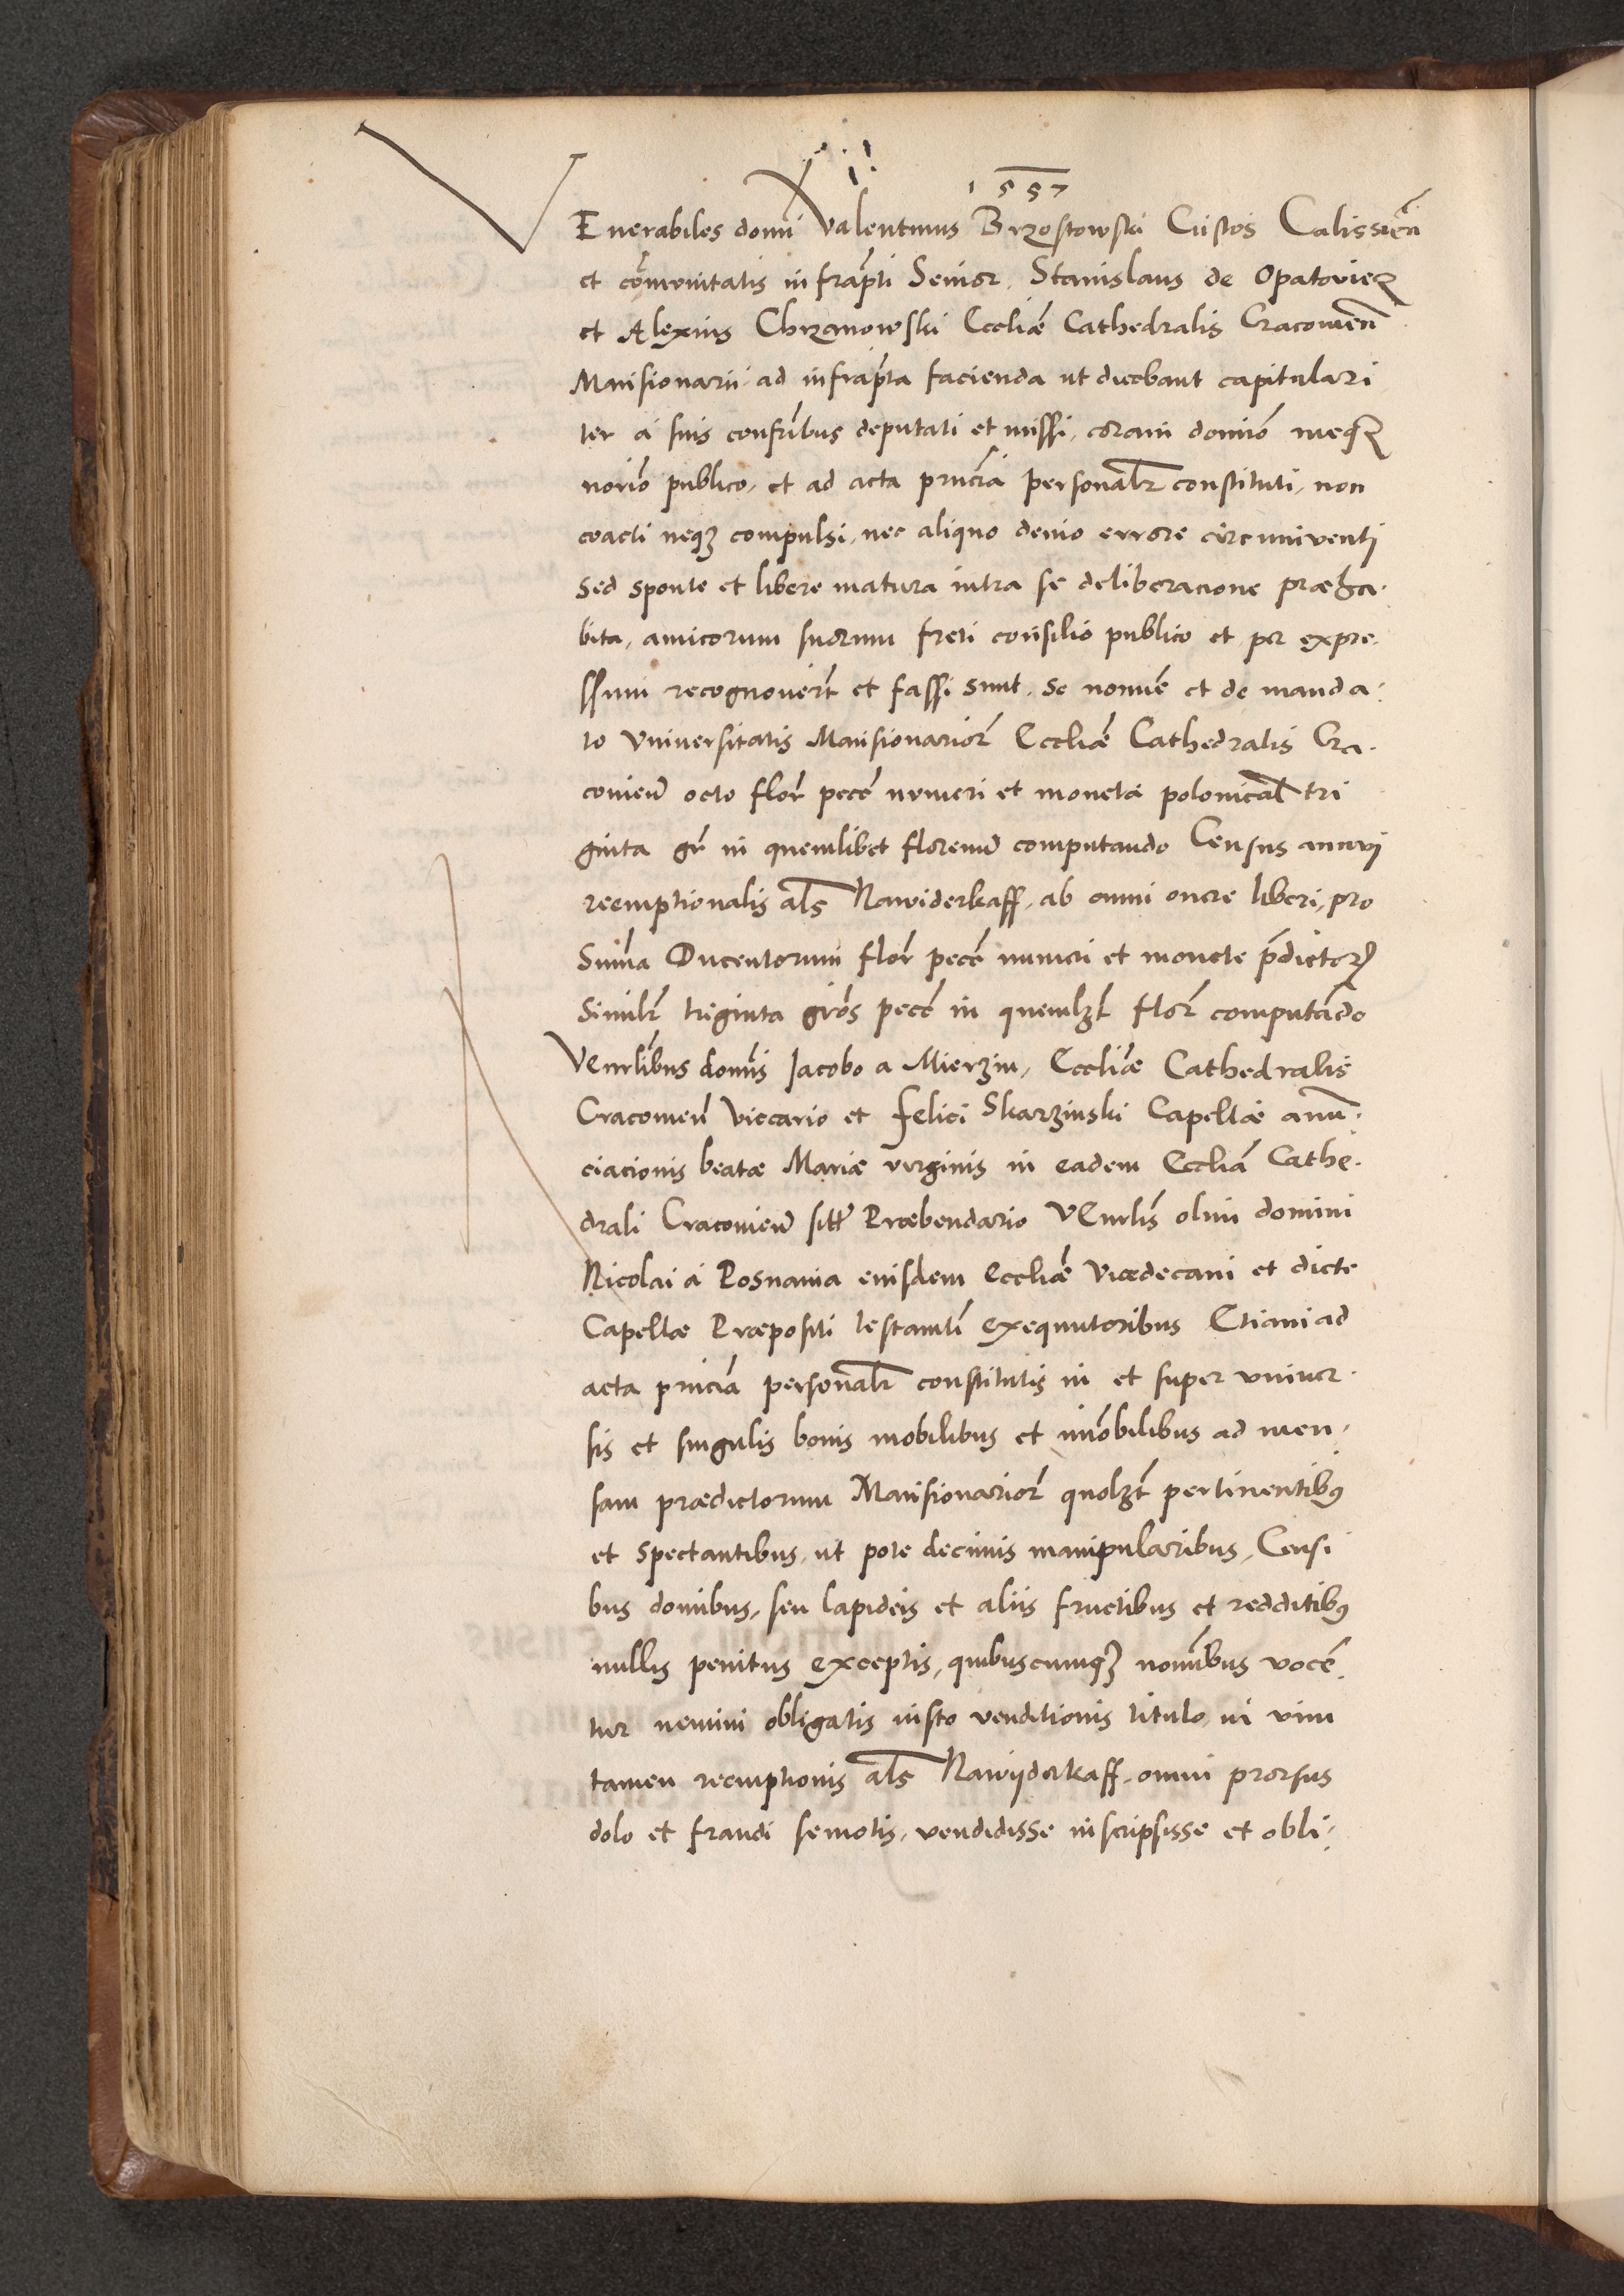 1557
VEnerabiles domī Valentinus Brzostowski Custos Calissieñ
et cōmunitatis infrap̄ti Senior, Stanislaus de Opatoviecz
et Alexius Chrzanowski Eccliæ Cathedralis Cracovieñ
Mansionarii ad infrap̄ta facienda ut dicebant capitulari
ter a suis confr̄ibus deputati et missi, coram domīo meqz
norīo publico, et ad acta pn̄cia personalr̄ constituti, non
coacti neqz compulsi, nec aliquo denio errore circumventi
sed sponte et libere matura intra se deliberacione præha.
bita, amicorum suorum freti consilio publico et per expre.
ssum recognovert̄ et fassi sunt. se nomīe et de manda.
to Universitatis Mansionarior̄ Eccliæ Cathedralis Cra.
covień octo flor̄ pecc̄ numeri et monetæ polonical̄ tri
ginta gr̄ in quemlibet florenū computando Census annui
reemptionalis als̄ Nawiderkaff, ab omni onere liberi, pro
Sum̄a Ducentorum flor̄ pecc̄ numeri et monete p̄dictor̄
similr̄ triginta gros̄ pecc̄ in quemlzt flor̄ computando
Venrl̄ibus domīs Jacobo a Mierzin, Eccliæ Cathedralis
Cracovień Viccario et Felici Skarzinski Capellæ anū.
ciacionis beatæ Mariæ virginis in eadem Ecclīa Cathe.
drali Cracovień sitt̄ Præbendario VEnrlis̄ olim domini
Nicolai a Posnania eiusdem Eccliæ Vicedecani et dicte
Capellæ Præpositi testamti exequutoribus Etiam ad
acta pn̄cia personalr̄ constitutis in et super univer.
sis et singulis bonis mobilibus et im̄obilibus ad men.
sam prædictorum Mansionarior̄ quolzt pertinentibus
et spectantibus, ut pote decimis manipularibus, Censi
bus domibus, seu lapideis et aliis fructibus et redditibus
nullis penitus exceptis, quibuscumqz nomībus vocē.
tur nemini obligatis iusto venditionis titulo, in vim
tamen reemptionis als̄ Nawijderkaff, omni prorsus
dolo et fraudi semotis, vendidisse inscripsisse et obli.